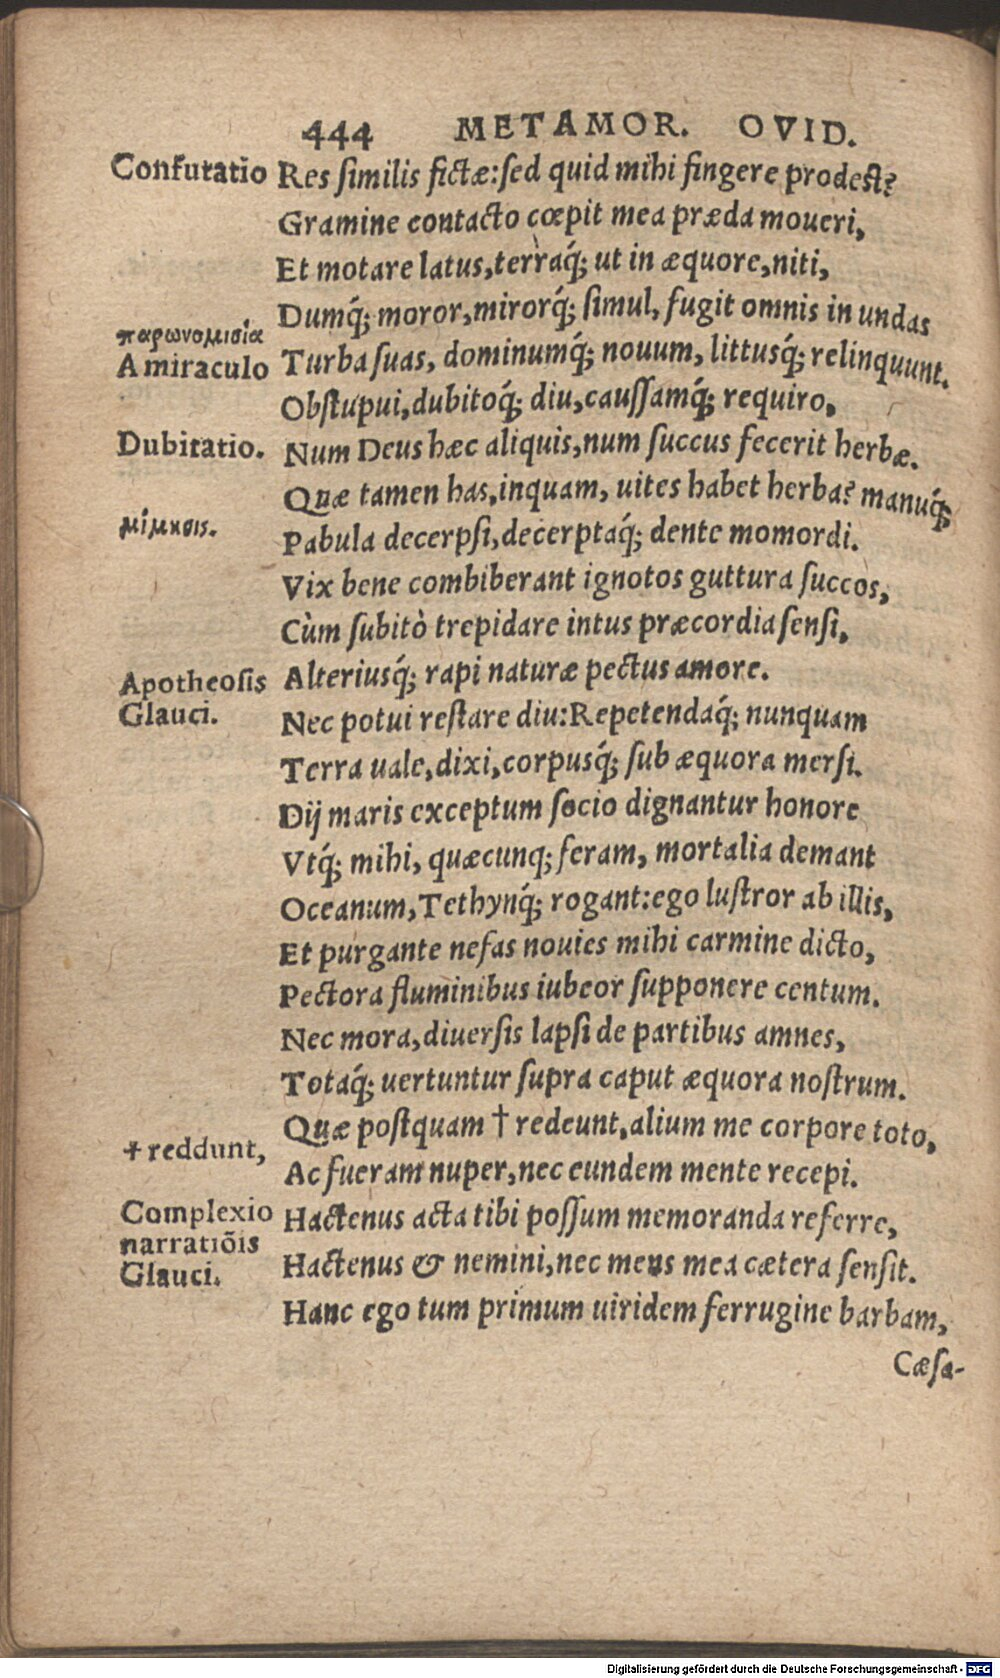 444 METAMOR. OVID.
Confutatio Res similis fictæ:sed quid mihi fingere prodest?
Gramine contacto cœpit mea præda moueri,
Et motare latus,terraq́; ut in æquore,niti,
Dumq́; moror,mirorq́; simul, fugit omnis in undas
παρωνομισία
A miraculo Turba suas, dominumq́; nouum, littusq́; relinquunt.
Obstupui,dubitoq́; diu,caussamq́; requiro,
Dubitatio. Num Deus hæc aliquis,num succus fecerit herbæ.
Quæ tamen has,inquam, uites habet herba? manuq́;
μίμησις. Pabula decerpsi,decerptaq́; dente momordi.
Vix bene combiberant ignotos guttura succos,
Cùm subitò trepidare intus præcordia sensi,
Apotheosis Alteriusq́; rapi naturæ pectus amore.
Glauci. Nec potui restare diu:Repetendaq́; nunquam
Terra uale,dixi,corpusq́; sub æquora mersi.
Dij maris exceptum socio dignantur honore
Vtq́; mihi, quæcunq; feram, mortalia demant
Oceanum,Tethynq́; rogant:ego lustror ab illis,
Et purgante nefas nouies mihi carmine dicto,
Pectora fluminibus iubeor supponere centum.
Nec mora,diuersis lapsi de partibus amnes,
Totaq́; uertuntur supra caput æquora nostrum.
Quæ postquam † redeunt,alium me corpore toto,
† reddunt, Ac fueram nuper,nec eundem mente recepi.
Complexio Hactenus acta tibi possum memoranda referre,
narratiõis Hactenus & nemini,nec mens mea cætera sensit.
Glauci. Hanc ego tum primum uiridem ferrugine barbam,
Cæsa-
Digitalisierung gefördert durch die Deutsche Forschungsgemeinschaft - DFG